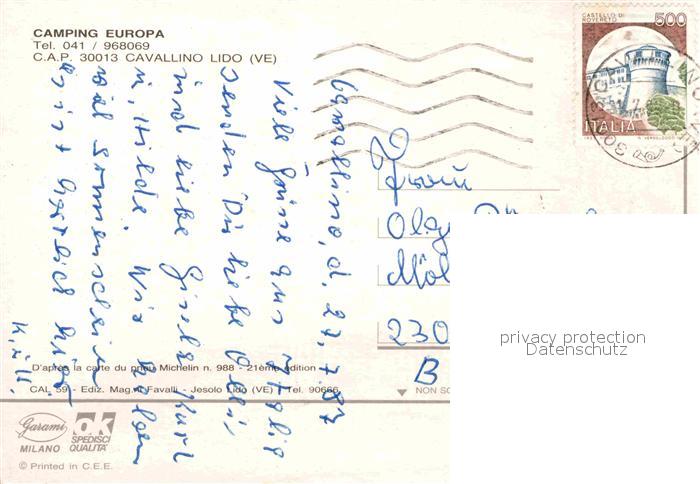 CAMPING EUROPA
Tel. 041 / 968069
C.A.P. 30013 CAVALLINO LIDO (VE)
CASTELLO DI ROVERETO
500
ITALIA
Cavallino, d. 27.7.87
Viele Grüsse aus Italien
senden Dir liebe
und liebe Gisela Kurt
u. Hilde. Wir haben
viel Sonnenschein
ist herrlich hier.
K. u. H.
Frau
Olg
Möl
230
B
privacy protection
Datenschutz
D'après la carte du pneu Michelin n. 988 - 21ème édition
CAL 59 - Ediz. Mag. Favalli - Jesolo Lido (VE) - Tel. 90666
NON SC
Garami
MILANO
ok
SPEDISCI
QUALITÀ
© Printed in C.E.E.